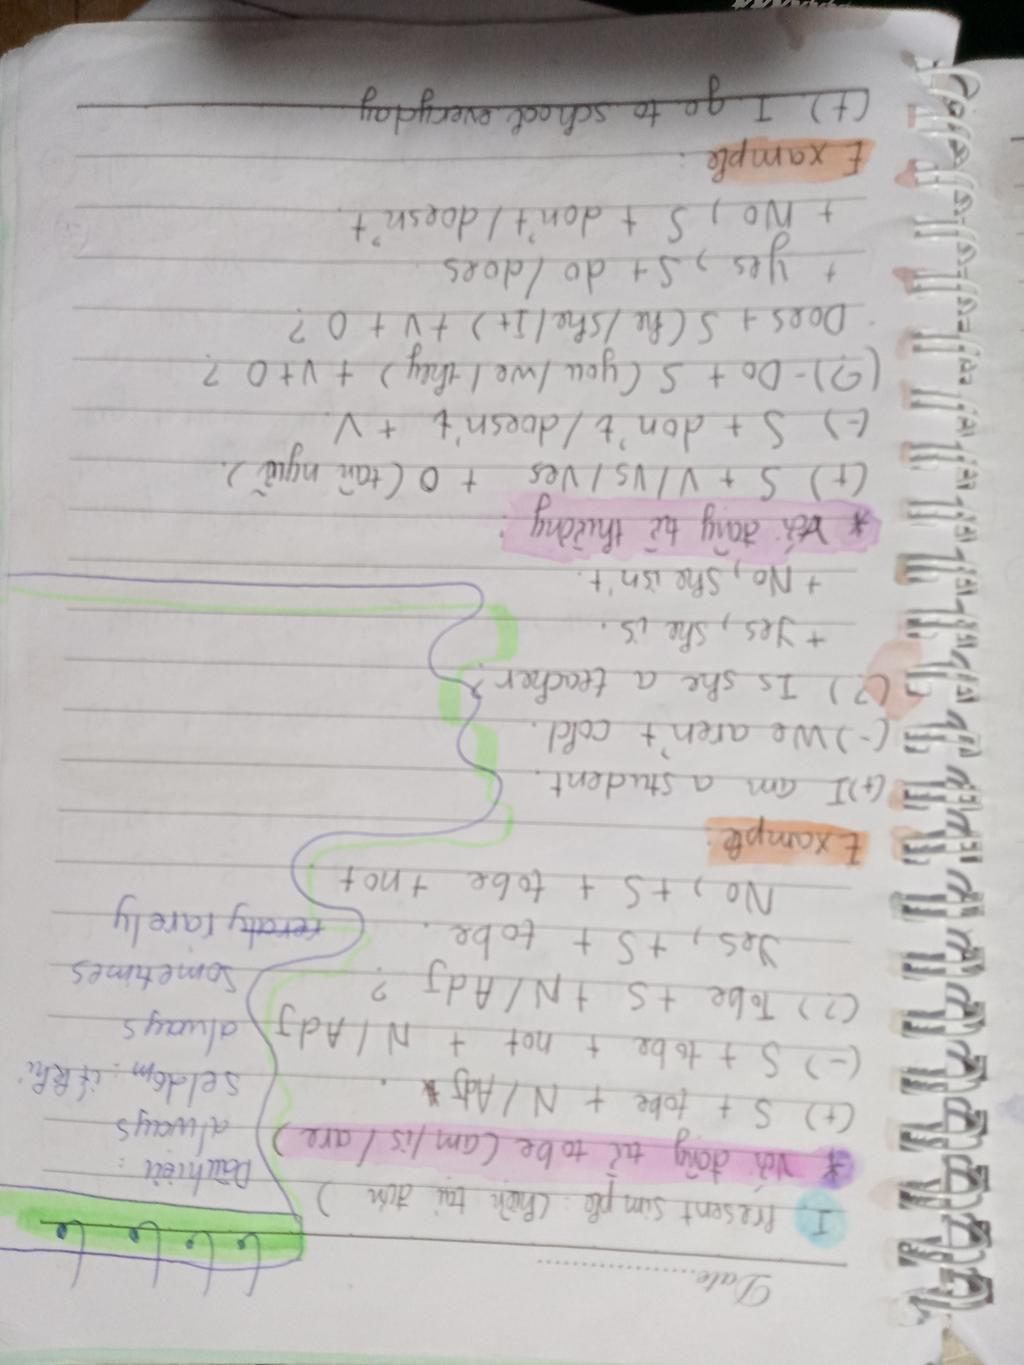 Date
I, Present simple (hiện tại đơn)
* Với động từ to be (am/is/are)
(+) S + tobe + N/Adj.
(-) S + to be + not + N/Adj
(?) Tobe + S + N/Adj ?
Yes, + S + tobe.
No, + S + to be + not
Example:
(+) I am a student.
(-) We aren't cold.
(?) Is she a teacher?
+ Yes, she is.
+ No, she isn't.
Dấu hiệu:
always
seldom: ít khi
always
sometimes
rarely
* Với động từ thường:
(+) S + V/Vs/Ves + O (tân ngữ).
(-) S + don't/doesn't + V.
(?) - Do + S (you/we/they) + V + O ?
Does + S (he/she/It) + V + O ?
+ Yes, S + do/does
+ No, S + don't/doesn't.
Example:
(+) I go to school everyday